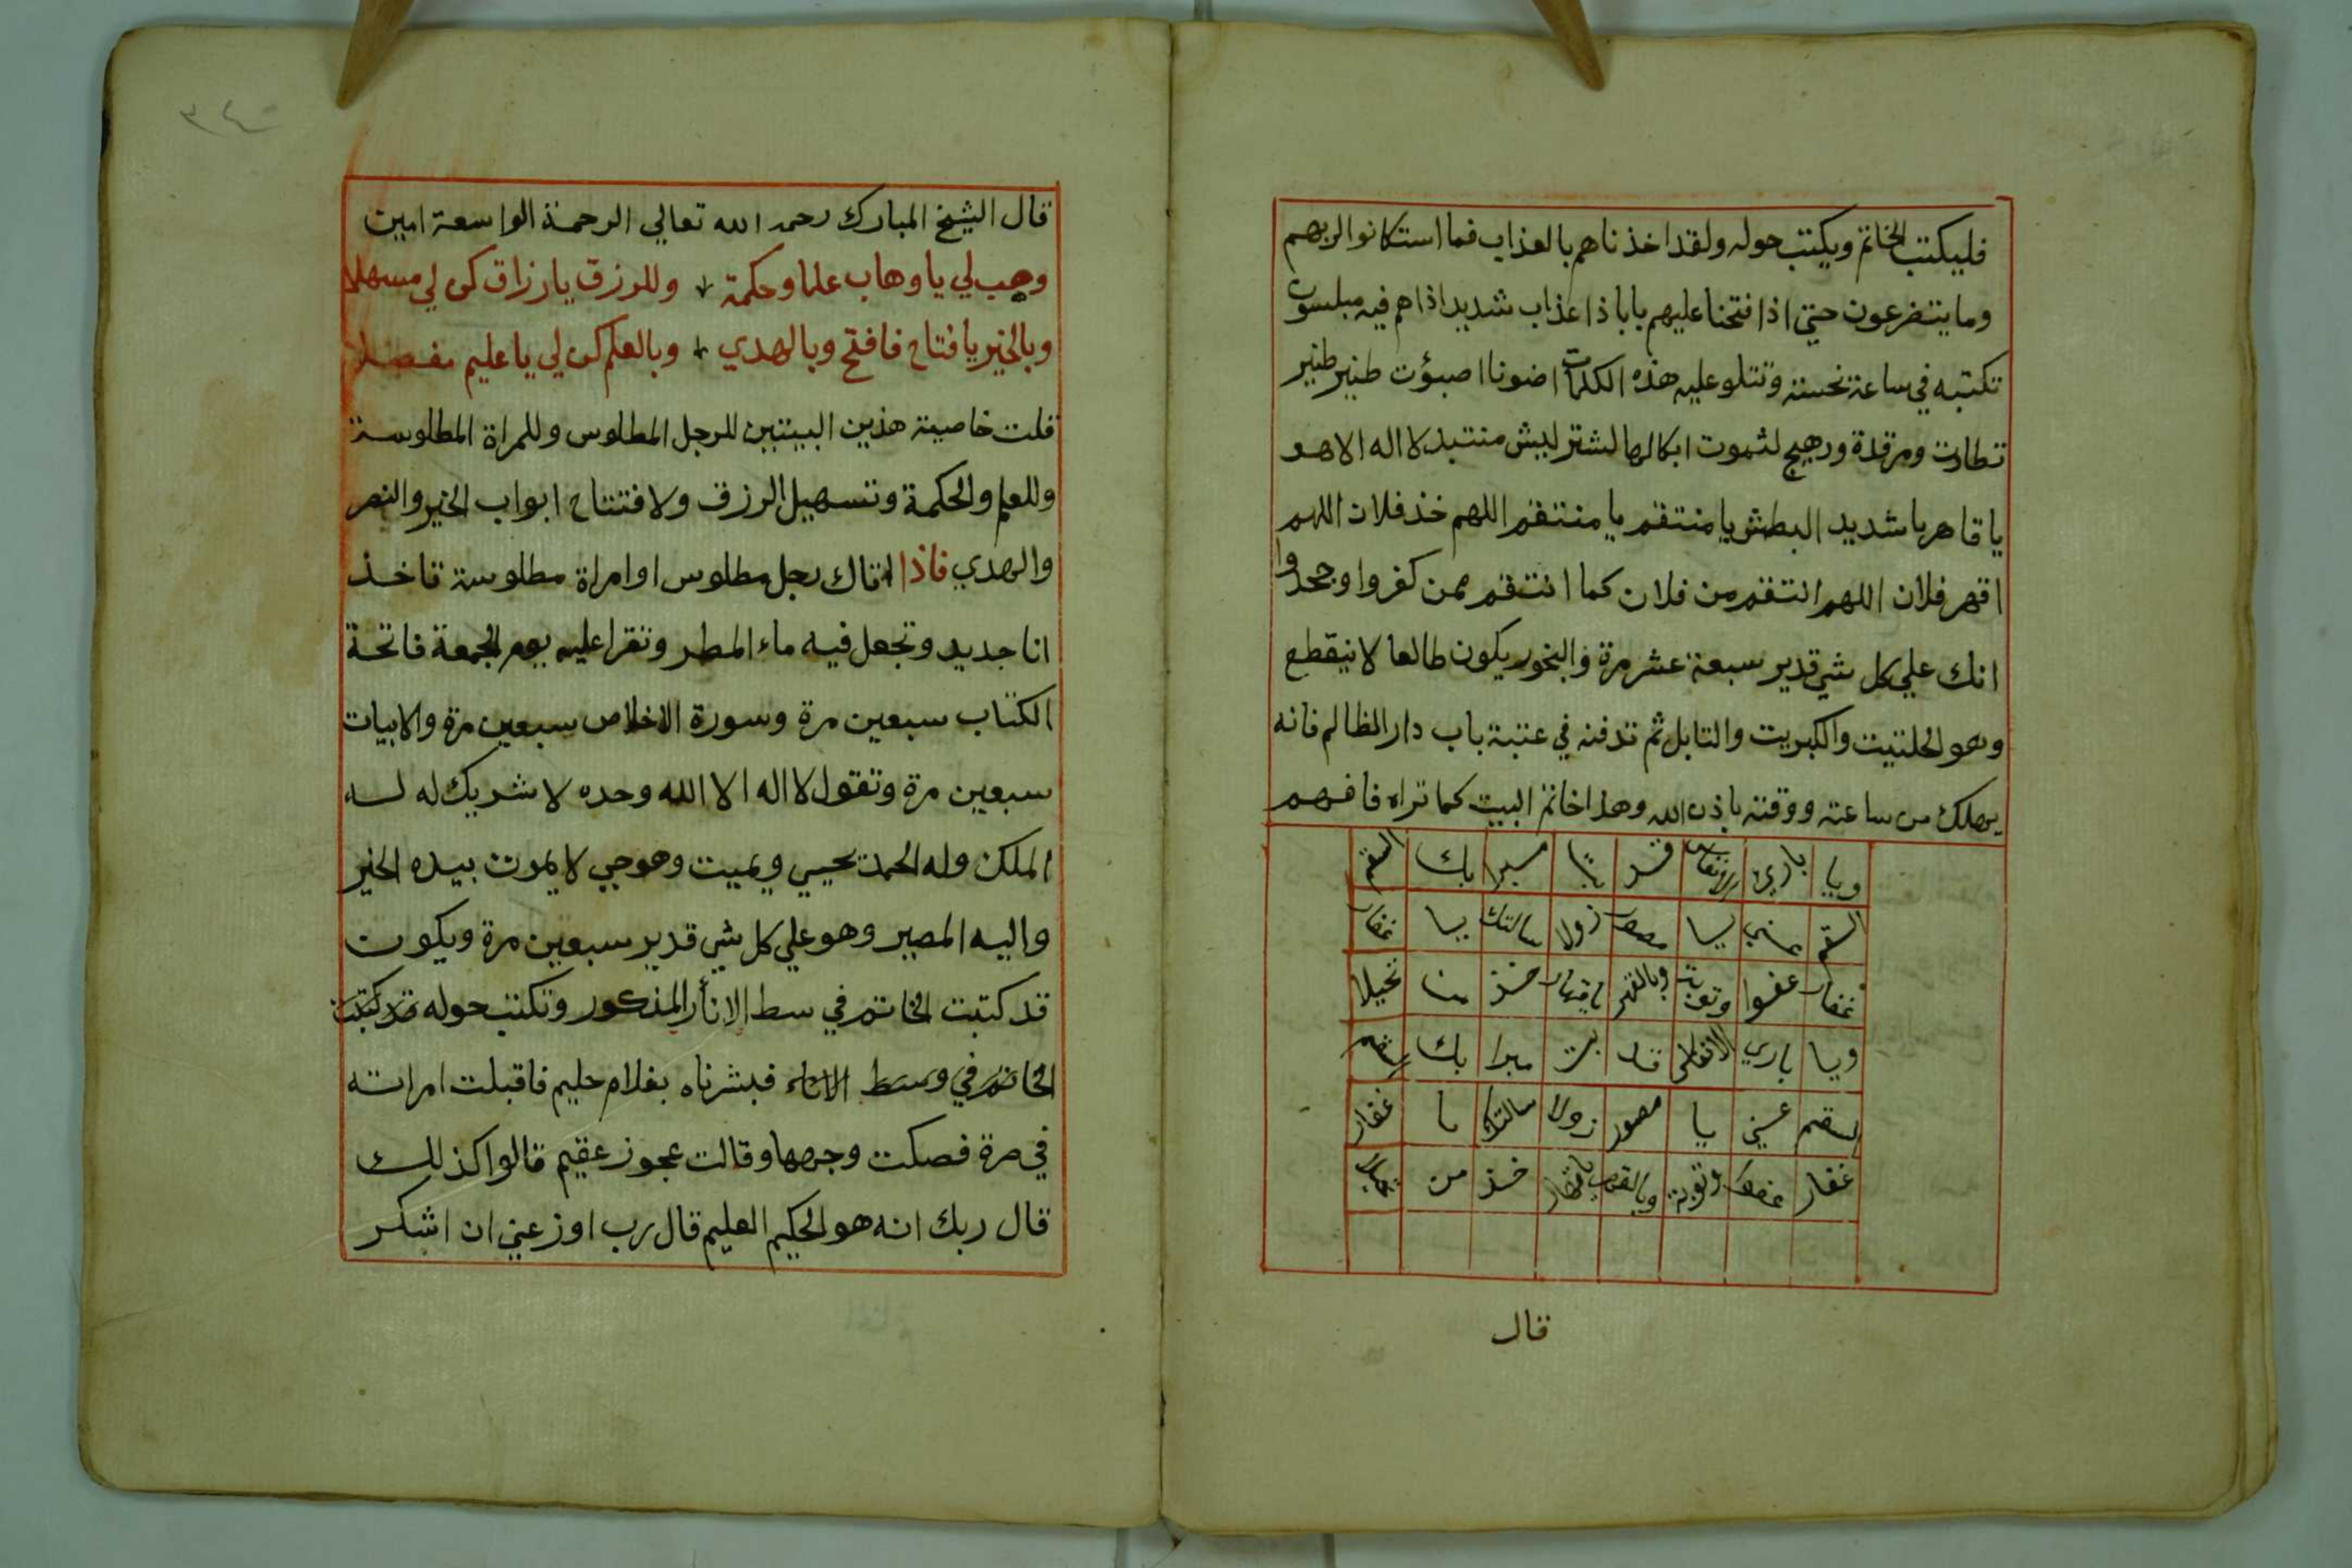 فليكتب الخاتم ويكتب حوله ولقد اخذناهم بالعذاب فما استكانوا لربهم
وما يتضرعون حتي اذا فتحنا عليهم بابا ذا عذاب شديد اذا هم فيه مبلسون
تكتبه في ساعة نحسة وتتلو عليه هذه الكلمات اضونا اصبؤت طنير طنير
ومرقدة ورهيج لثموت ابكالها لشتر ليش منتبد لا اله الا هو
يا قاهر يا شديد البطش يا منتقم يا منتقم اللهم خذ فلان اللهم
اقهر فلان اللهم انتقم من فلان كما انتقم ممن كفروا وجحدوا
انك علي كل شي قدير سبعة عشر مرة والبخور يكون طالعا لا ينقطع
وهو الحلتيت والكبريت والتابل ثم تدفنه في عتبة باب دار الظالم فانه
يهلك من ساعته ووقته باذن الله وهذا خاتم البيت كما تراه فافهم
ويا باري قد بك السقم
السقم يا زولا سالتك يا غفار
غفار عفوا وتوبة وبالقهر يا قهار خذ تحيلا
ويا باري بك
لسقم يا مصور زولا سالتك يا غفار
غفار وتوبة خذ من
قال
٣٤٠
قال الشيخ المبارك رحمه الله تعالي الرحمة الواسعة امين
وهب لي يا وهاب علما وحكمة وللرزق يا رزاق كن لي مسهلا
وبالخير يا فتاح فافتح وبالهدي وبالعلم كن لي يا عليم مفضلا
قلت خاصية هذين البيتين للرجل المطلوس وللمراة المطلوسة
وللعلم والحكمة وتسهيل الرزق ولافتتاح ابواب الخير والنصر
والهدي فاذا اتاك رجل مطلوس او امراة مطلوسة تاخذ
انا جديد وتجعل فيه ماء المطر وتقرا عليه يوم الجمعة فاتحة
الكتاب سبعين مرة وسورة الاخلاص سبعين مرة والابيات
سبعين مرة وتقول لا اله الا الله وحده لا شريك له له
الملك وله الحمد يحيي ويميت وهو حي لا يموت بيده الخير
واليه المصير وهو علي كل شي قدير سبعين مرة ويكون
قد كتبت الخاتم في سط الانأر المذكور وتكتب حوله قد كتبت
الخاتم في وسط الاناء فبشرناه بغلام حليم فاقبلت امراته
في صرة فصكت وجهها وقالت عجوز عقيم قالوا كذلك
قال ربك انه هو الحكيم العليم قال رب اوزعني ان اشكر